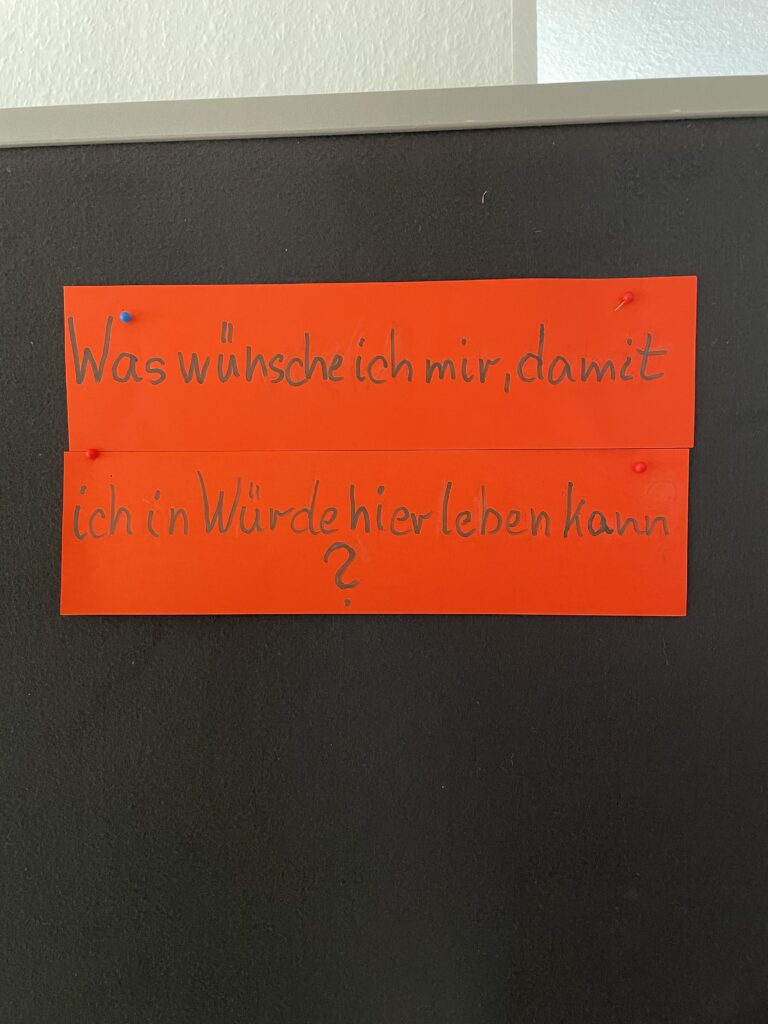 Was wünsche ich mir, damit
ich in Würde hier leben kann
?